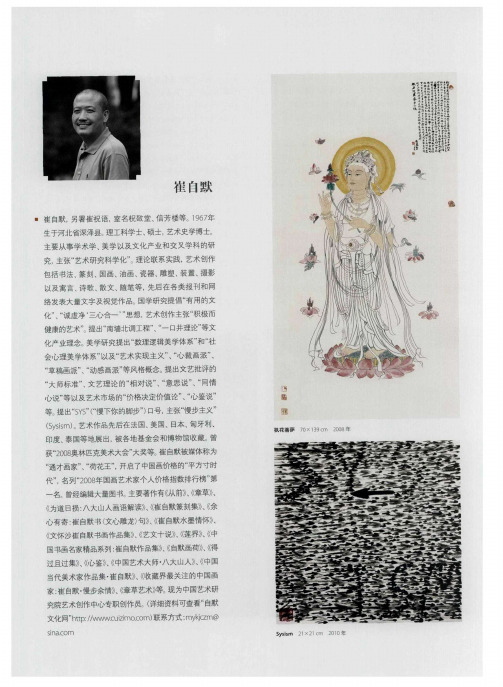 崔自默
崔自默，另署崔祝语，室名祝敔堂、信芳楼等，1967年
生于河北省深泽县。理工科学士、硕士，艺术史学博士。
主要从事学术学、美学以及文化产业和交叉学科的研
究，主张“艺术研究科学化”，理论联系实践，艺术创作
包括书法、篆刻、国画、油画、瓷器、雕塑、装置、摄影
以及寓言、诗歌、散文、随笔等，先后在各类报刊和网
络发表大量文字及视觉作品。国学研究提倡“有用的文
化”、“诚虚净‘三心合一’”思想，艺术创作主张“积极而
健康的艺术”，提出“南墙北调工程”、“一口井理论”等文
化产业理念，美学研究提出“数理逻辑美学体系”和“社
会心理美学体系”以及“艺术实现主义”、“心裁画派”、
“草稿画派”、“动感画派”等风格概念，提出文艺批评的
“大师标准”，文艺理论的“相对说”、“意思说”、“同情
心说”等以及艺术市场的“价格决定价值论”、“心鉴说”
等，提出“SYS”（“慢下你的脚步”）口号，主张“慢步主义”
（Sysism）。艺术作品先后在法国、美国、日本、匈牙利、
印度、泰国等地展出，被各地基金会和博物馆收藏。曾
获“2008奥林匹克美术大会”大奖等。崔自默被媒体称为
“通才画家”、“荷花王”，开启了中国画价格的“平方寸时
代”，名列“2008年国画艺术家个人价格指数排行榜”第
一名。曾经编辑大量图书，主要著作有《从前》、《章草》、
《为道日损：八大山人画语解读》、《崔自默篆刻集》、《余
心有寄：崔自默书〈文心雕龙〉句》、《崔自默水墨情怀》、
《文怀沙崔自默书画作品集》、《艺文十说》、《莲界》、《中
国书画名家精品系列：崔自默作品集》、《自默画荷》、《得
过且过集》、《心鉴》、《中国艺术大师·八大山人》、《中国
当代美术家作品集·崔自默》、《收藏界最关注的中国画
家：崔自默·慢步余情》、《章草艺术》等。现为中国艺术研
究院艺术创作中心专职创作员。（详细资料可查看“自默
文化网”http://www.cuizimo.com）联系方式：mykjczm@
sina.com
玖花菩萨 70×139 cm 2008 年
Sysism 21×21 cm 2010 年